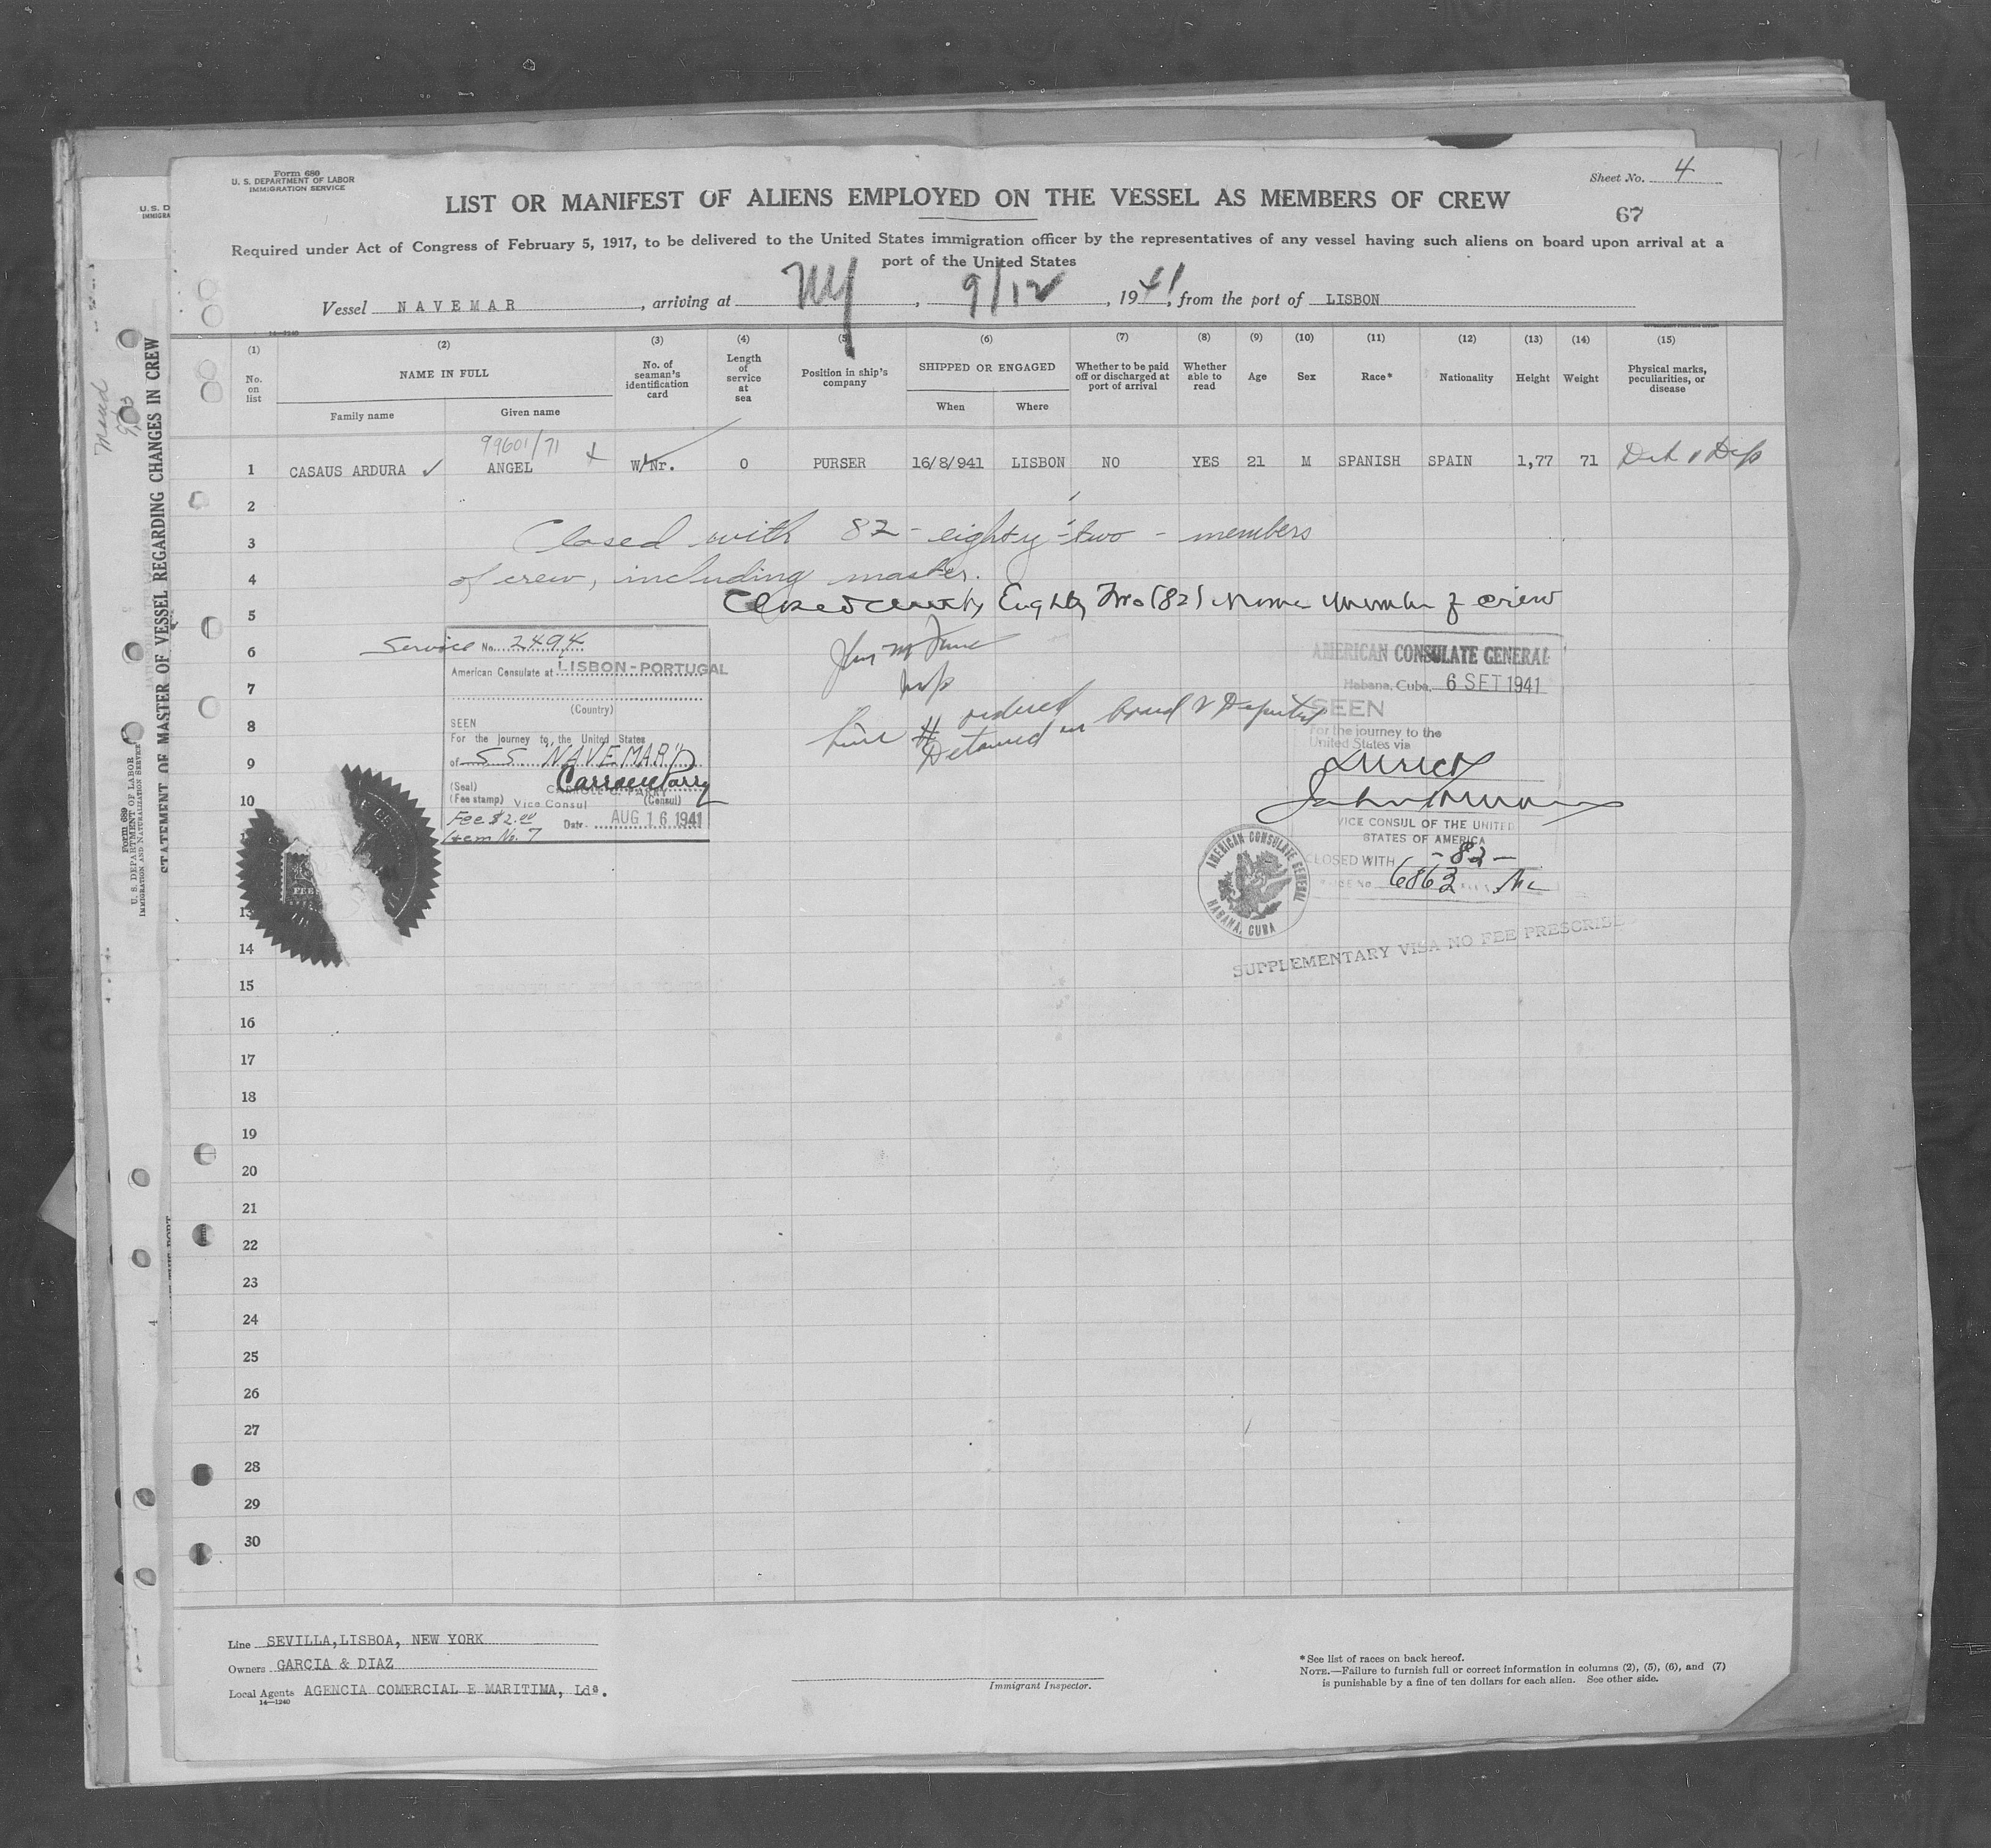 Form 680
U. S. DEPARTMENT OF LABOR
IMMIGRATION SERVICE
Sheet No. 4
LIST OR MANIFEST OF ALIENS EMPLOYED ON THE VESSEL AS MEMBERS OF CREW
67
Required under Act of Congress of February 5, 1917, to be delivered to the United States immigration officer by the representatives of any vessel having such aliens on board upon arrival at a
port of the United States
Vessel NAVEMAR, arriving at NY, 9/12, 1941, from the port of LISBON
14—1240
(1) No. on list
(2) NAME IN FULL
Family name
Given name
(3) No. of seaman's identification card
(4) Length of service at sea
(5) Position in ship's company
(6) SHIPPED OR ENGAGED
When
Where
(7) Whether to be paid off or discharged at port of arrival
(8) Whether able to read
(9) Age
(10) Sex
(11) Race*
(12) Nationality
(13) Height
(14) Weight
(15) Physical marks, peculiarities, or disease
99601/71
1 CASAUS ARDURA ✓ ANGEL W/Nr. 0 PURSER 16/8/941 LISBON NO YES 21 M SPANISH SPAIN 1,77 71
2
3 Closed with 82 - eighty-two - members
4 of crew, including master.
5 Eighty Two (82) crew
6
7
8
9
10
13
14
15
16
17
18
19
20
21
22
23
24
25
26
27
28
29
30
Service No. 2494
American Consulate at LISBON-PORTUGAL
(Country)
SEEN
For the journey to the United States
of S.S. "NAVEMAR"
(Seal)
(Fee stamp) Vice Consul (Consul)
Fee $2.00
Item No. 7
Date AUG 16 1941
FEE
ordered
Detained on board & Deported
AMERICAN CONSULATE GENERAL
Habana, Cuba, 6 SET 1941
SEEN
For the journey to the
United States via
VICE CONSUL OF THE UNITED
STATES OF AMERICA
CLOSED WITH -82-
6863
AMERICAN CONSULATE GENERAL
HABANA, CUBA
SUPPLEMENTARY VISA NO FEE PRESCRIBE
Line SEVILLA, LISBOA, NEW YORK
Owners GARCIA & DIAZ
Local Agents AGENCIA COMERCIAL E MARITIMA, Ldª.
14—1240
Immigrant Inspector.
*See list of races on back hereof.
NOTE.—Failure to furnish full or correct information in columns (2), (5), (6), and (7)
is punishable by a fine of ten dollars for each alien. See other side.
STATEMENT OF MASTER OF VESSEL REGARDING CHANGES IN CREW
Form 689
U. S. DEPARTMENT OF LABOR
IMMIGRATION AND NATURALIZATION SERVICE
4
U.S. D
IMMIGRA